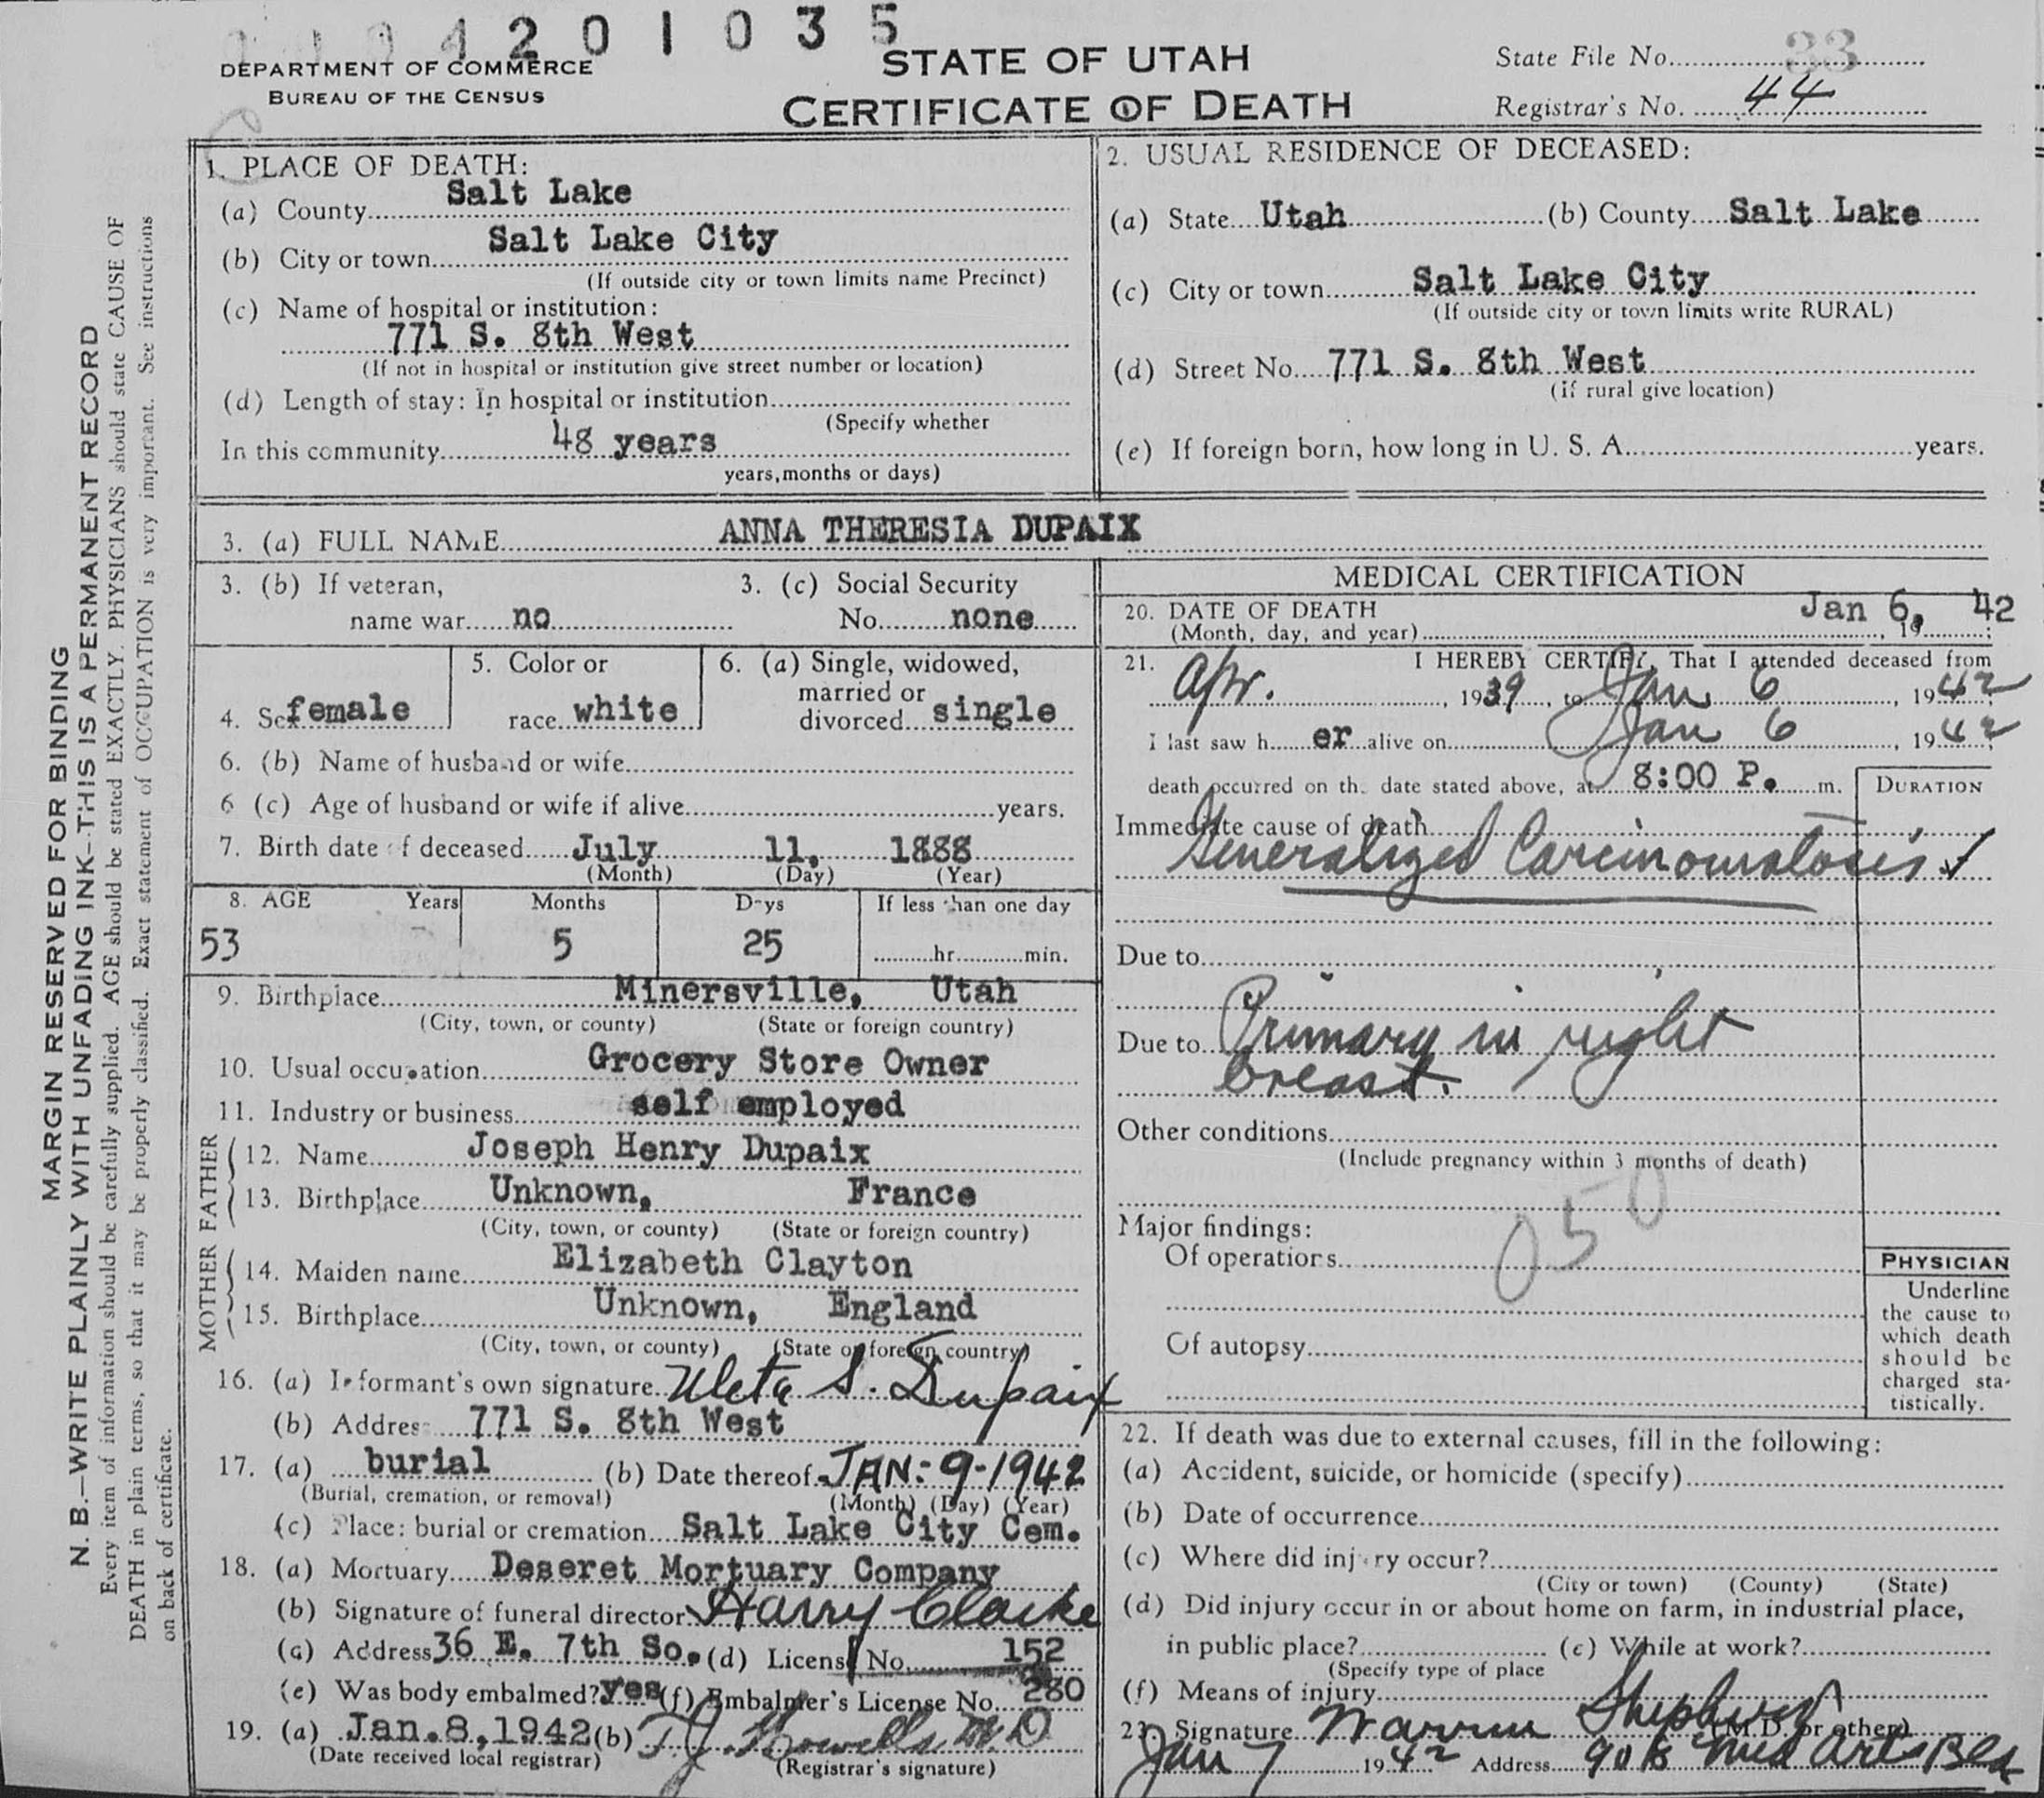 201035
DEPARTMENT OF COMMERCE
BUREAU OF THE CENSUS
STATE OF UTAH
CERTIFICATE OF DEATH
State File No. 33
Registrar's No. 44
MARGIN RESERVED FOR BINDING
N. B.—WRITE PLAINLY WITH UNFADING INK--THIS IS A PERMANENT RECORD
Every item of information should be carefully supplied. AGE should be stated EXACTLY. PHYSICIANS should state CAUSE OF
DEATH in plain terms, so that it may be properly classified. Exact statement of OCCUPATION is very important. See instructions
on back of certificate.
1. PLACE OF DEATH:
(a) County Salt Lake
(b) City or town Salt Lake City
(If outside city or town limits name Precinct)
(c) Name of hospital or institution:
771 S. 8th West
(If not in hospital or institution give street number or location)
(d) Length of stay: In hospital or institution
(Specify whether
In this community 48 years
years, months or days)
2. USUAL RESIDENCE OF DECEASED:
(a) State Utah (b) County Salt Lake
(c) City or town Salt Lake City
(If outside city or town limits write RURAL)
(d) Street No. 771 S. 8th West
(if rural give location)
(e) If foreign born, how long in U. S. A. years.
3. (a) FULL NAME ANNA THERESIA DUPAIX
3. (b) If veteran,
name war no
3. (c) Social Security
No. none
4. Sex female
5. Color or
race white
6. (a) Single, widowed,
married or
divorced single
6. (b) Name of husband or wife
6 (c) Age of husband or wife if alive years.
7. Birth date of deceased July 11, 1888
(Month) (Day) (Year)
8. AGE Years Months Days If less than one day
53 5 25 hr. min.
9. Birthplace Minersville, Utah
(City, town, or county) (State or foreign country)
10. Usual occupation Grocery Store Owner
11. Industry or business self employed
FATHER
12. Name Joseph Henry Dupaix
13. Birthplace Unknown, France
(City, town, or county) (State or foreign country)
MOTHER
14. Maiden name Elizabeth Clayton
15. Birthplace Unknown, England
(City, town, or county) (State or foreign country)
16. (a) Informant's own signature Uleta S. Dupaix
(b) Address 771 S. 8th West
17. (a) burial (b) Date thereof JAN-9-1942
(Burial, cremation, or removal) (Month) (Day) (Year)
(c) Place: burial or cremation Salt Lake City Cem.
18. (a) Mortuary Deseret Mortuary Company
(b) Signature of funeral director Harry Clarke
(c) Address 36 E. 7th So. (d) License No. 152
(e) Was body embalmed? yes (f) Embalmer's License No. 280
19. (a) Jan. 8, 1942 (b) T. J. Howells M.D
(Date received local registrar) (Registrar's signature)
MEDICAL CERTIFICATION
20. DATE OF DEATH
(Month, day, and year) Jan 6, 19 42
21. I HEREBY CERTIFY, That I attended deceased from
Apr. , 1939, to Jan 6, 1942
I last saw h er alive on Jan 6, 1942
death occurred on the date stated above, at 8:00 P. m.
DURATION
Immediate cause of death
Generalized Carcinomatosis ✓
Due to
Due to Primary in right
breast.
Other conditions
(Include pregnancy within 3 months of death)
050
Major findings:
Of operations
Of autopsy
PHYSICIAN
Underline
the cause to
which death
should be
charged sta-
tistically.
22. If death was due to external causes, fill in the following:
(a) Accident, suicide, or homicide (specify)
(b) Date of occurrence
(c) Where did injury occur?
(City or town) (County) (State)
(d) Did injury occur in or about home on farm, in industrial place,
in public place? (e) While at work?
(Specify type of place
(f) Means of injury
23. Signature Warren Shepherd (M.D. or other)
Jan 7 1942 Address Med Arts Bld